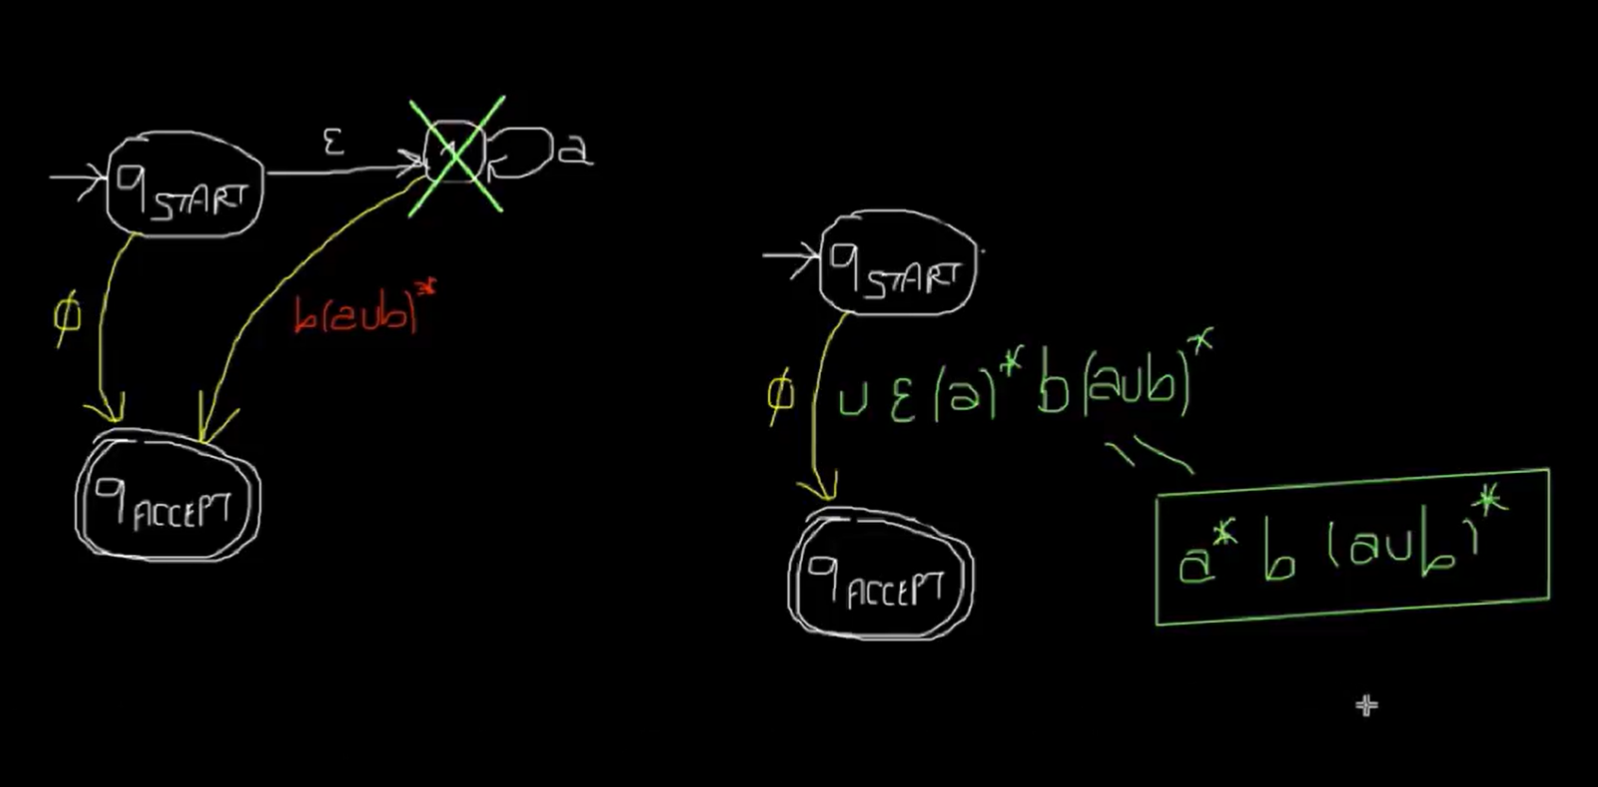 ε
1
a
q START
∅
b(a∪b)*
q ACCEPT
q START
∅ ∪ ε(a)* b(a∪b)*
q ACCEPT
a* b (a∪b)*